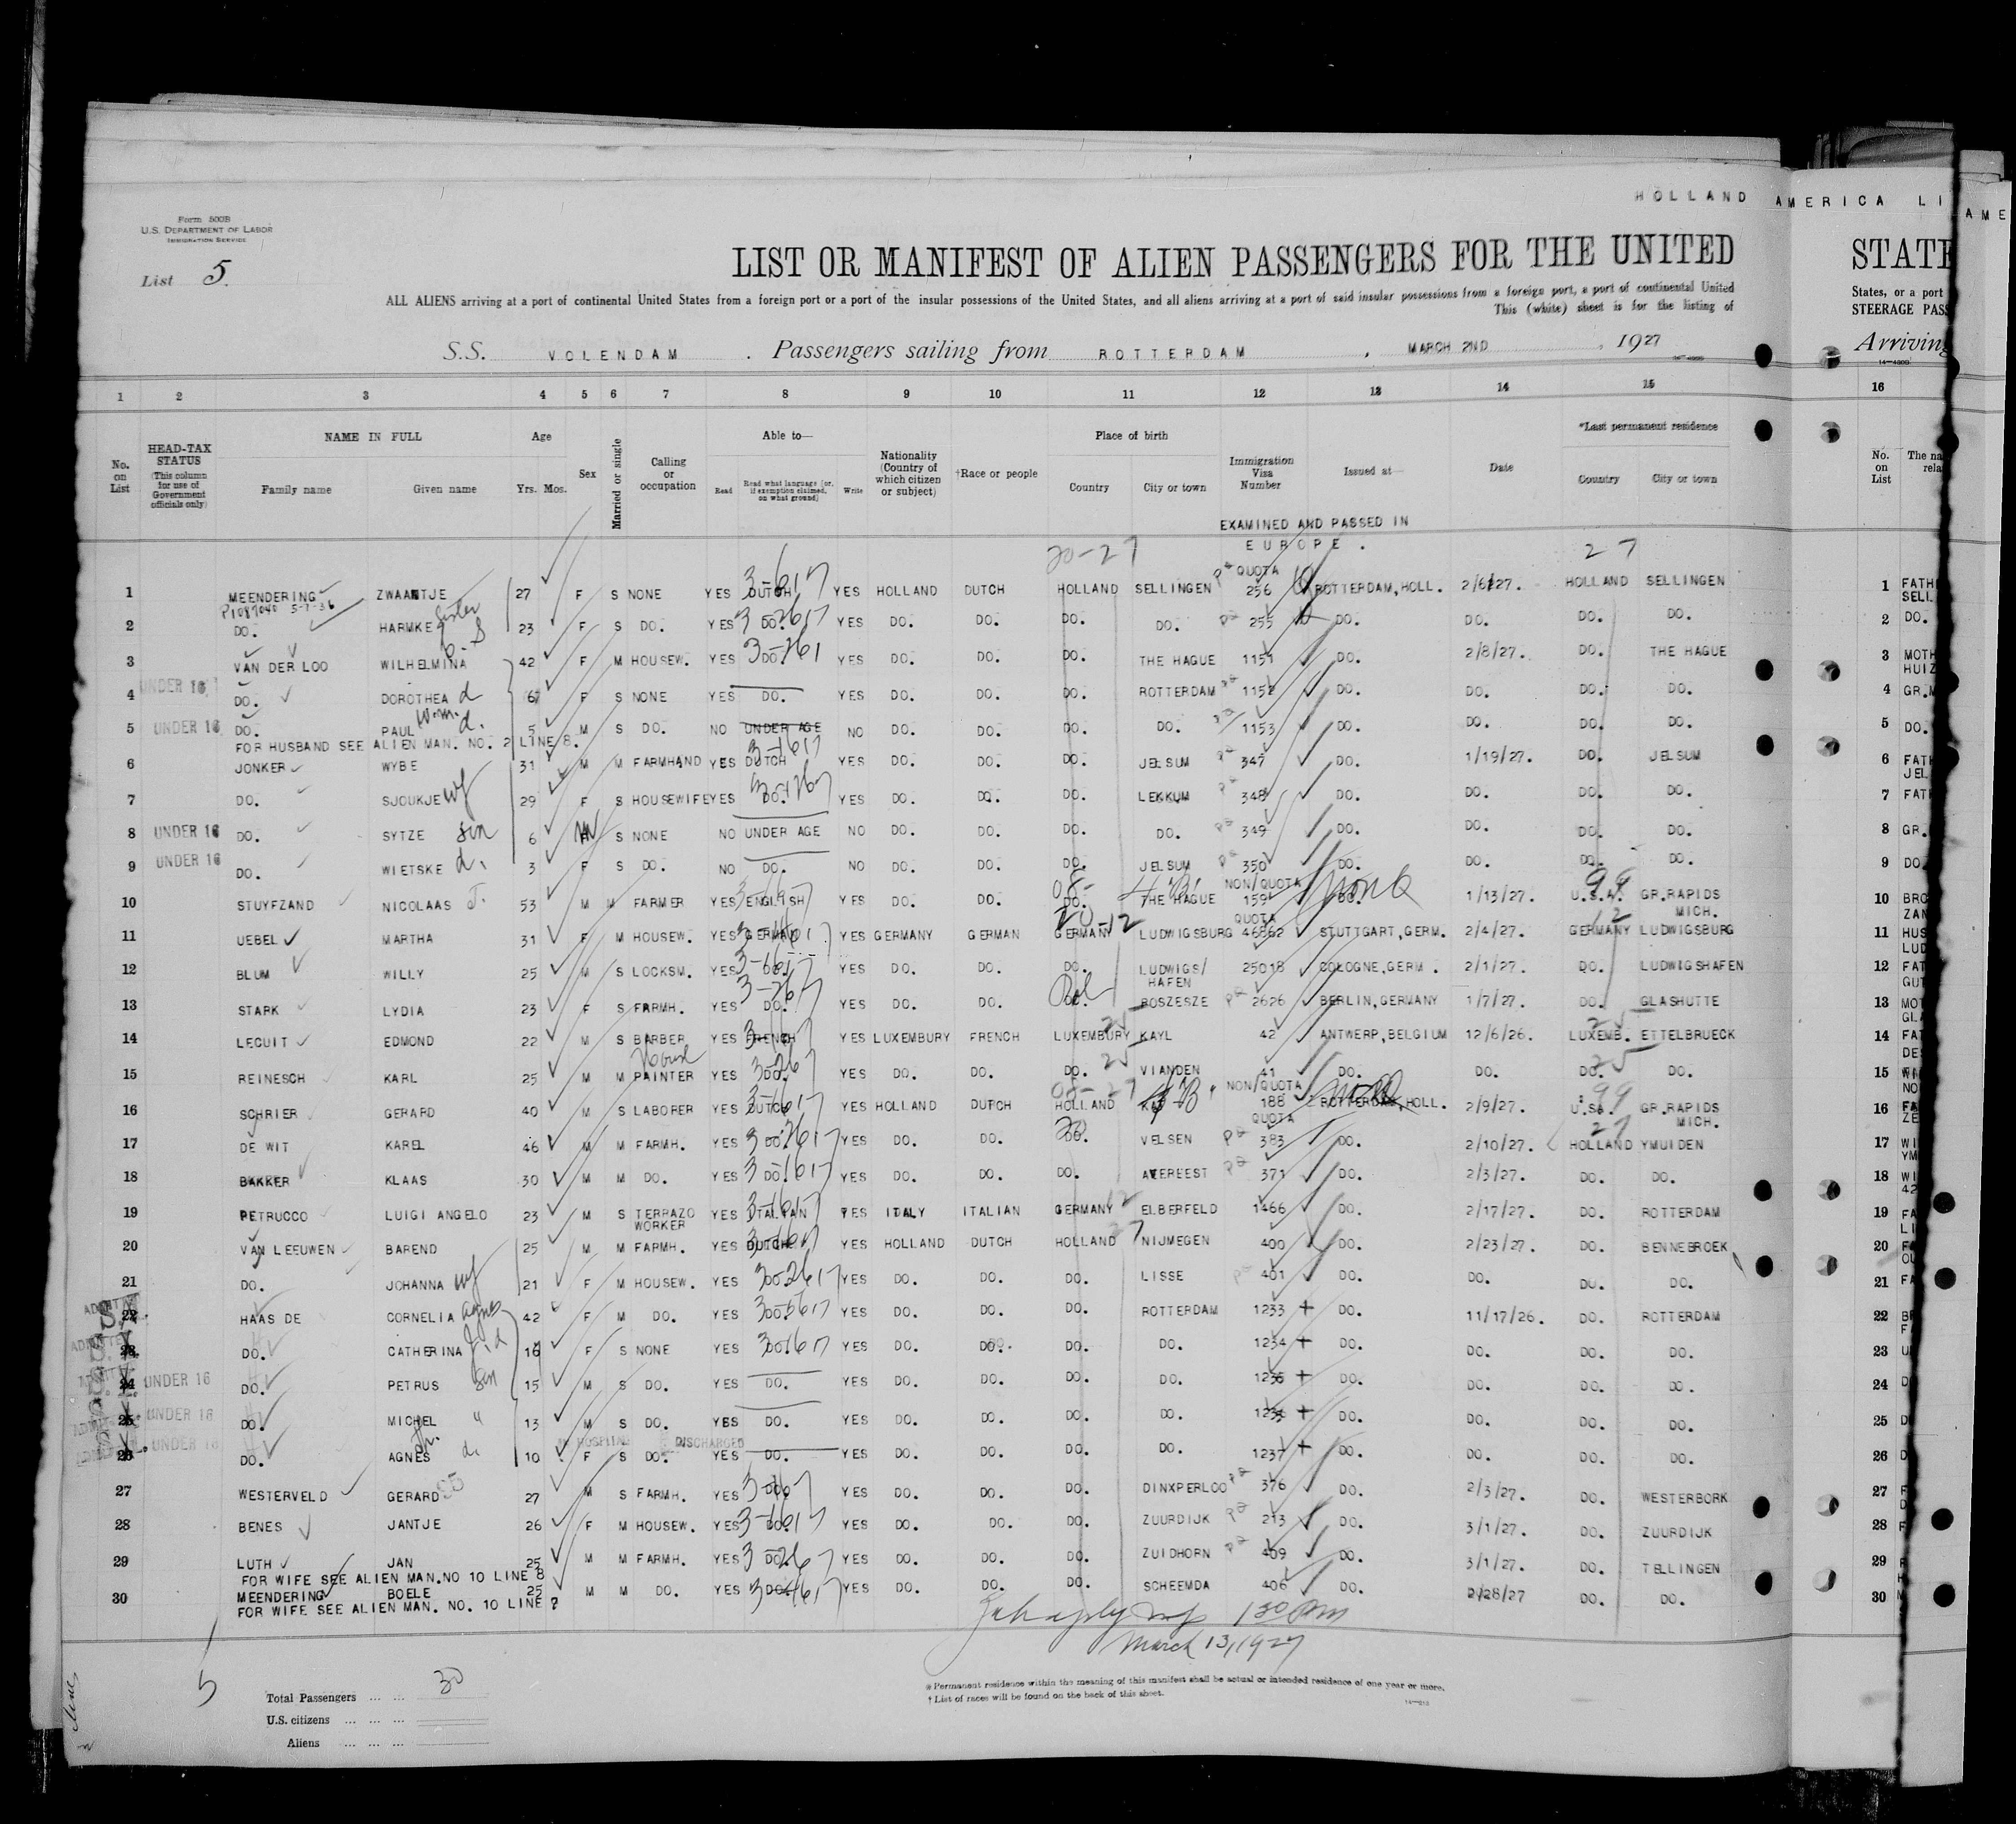 HOLLAND AMERICA LI
AME
Form 500B
U.S. DEPARTMENT OF LABOR
IMMIGRATION SERVICE
List 5.
LIST OR MANIFEST OF ALIEN PASSENGERS FOR THE UNITED
STATE
ALL ALIENS arriving at a port of continental United States from a foreign port or a port of the insular possessions of the United States, and all aliens arriving at a port of said insular possessions from a foreign port, a port of continental United
States, or a port
This (white) sheet is for the listing of
STEERAGE PASS
S.S. VOLENDAM. Passengers sailing from ROTTERDAM, MARCH 2ND, 1927
Arriving
1 2 3 4 5 6 7 8 9 10 11 12 13 14 15 16
No. on List
HEAD-TAX STATUS (This column for use of Government officials only)
NAME IN FULL
Family name Given name
Age
Yrs. Mos.
Sex
Married or single
Calling or occupation
Able to—
Read Read what language [or, if exemption claimed, on what ground] Write
Nationality (Country of which citizen or subject)
†Race or people
Place of birth
Country City or town
Immigration Visa Number
Issued at—
Date
*Last permanent residence
Country City or town
No. on List
The na
rela
EXAMINED AND PASSED IN
EUROPE.
20-27 27
QUOTA
1 MEENDERING ZWAANTJE 27 F S NONE YES DUTCH YES HOLLAND DUTCH HOLLAND SELLINGEN 256 ROTTERDAM,HOLL. 2/6/27. HOLLAND SELLINGEN 1 FATH
SELL
2 DO. HARMKE sister 23 F S DO. YES DO. YES DO. DO. DO. DO. 255 DO. DO. DO. DO. 2 DO.
3 VAN DER LOO WILHELMINA 42 F M HOUSEW. YES DO. YES DO. DO. DO. THE HAGUE 1151 DO. 2/8/27. DO. THE HAGUE 3 MOTH
HUIZ
4 UNDER 16 DO. DOROTHEA d 6 F S NONE YES DO. YES DO. DO. DO. ROTTERDAM 1152 DO. DO. DO. DO. 4 GR.M
5 UNDER 16 DO. PAUL 5 M S DO. NO UNDER AGE NO DO. DO. DO. DO. 1153 DO. DO. DO. DO. 5 DO.
FOR HUSBAND SEE ALIEN MAN. NO. 2 LINE 8.
6 JONKER WYBE 31 M M FARMHAND YES DUTCH YES DO. DO. DO. JELSUM 347 DO. 1/19/27. DO. JELSUM 6 FATH
JEL
7 DO. SJOUKJE wf 29 F S HOUSEWIFE YES DO. YES DO. DO. DO. LEKKUM 348 DO. DO. DO. DO. 7 FATH
8 UNDER 16 DO. SYTZE son 6 M S NONE NO UNDER AGE NO DO. DO. DO. DO. 349 DO. DO. DO. DO. 8 GR.
9 UNDER 16 DO. WIETSKE d. 3 F S DO. NO DO. NO DO. DO. DO. JELSUM 350 DO. DO. DO. DO. 9 DO
NON/QUOTA
10 STUYFZAND NICOLAAS J. 53 M M FARMER YES ENGLISH YES DO. DO. DO. THE HAGUE 159 DO. 1/13/27. U.S.A. GR.RAPIDS MICH. 10 BRO
ZAN
QUOTA
11 UEBEL MARTHA 31 F M HOUSEW. YES GERMAN YES GERMANY GERMAN GERMANY LUDWIGSBURG 46862 STUTTGART,GERM. 2/4/27. GERMANY LUDWIGSBURG 11 HUS
LUD
12 BLUM WILLY 25 M S LOCKSM. YES YES DO. DO. DO. LUDWIGS/HAFEN 25018 COLOGNE,GERM. 2/1/27. DO. LUDWIGSHAFEN 12 FAT
GUT
13 STARK LYDIA 23 F S FARMH. YES DO. YES DO. DO. DO. ROSZESZE 2626 BERLIN,GERMANY 1/7/27. DO. GLASHUTTE 13 MOT
14 LECUIT EDMOND 22 M S BARBER YES FRENCH YES LUXEMBURY FRENCH LUXEMBURY KAYL 42 ANTWERP,BELGIUM 12/6/26. LUXEMB. ETTELBRUECK 14 FAT
DES
15 REINESCH KARL 25 M M PAINTER YES DO. YES DO. DO. DO. VIANDEN 41 DO. DO. DO. DO. 15
NON/QUOTA
16 SCHRIER GERARD 40 M S LABORER YES DUTCH YES HOLLAND DUTCH HOLLAND 188 ROTTERDAM,HOLL. 2/9/27. U.SA. GR.RAPIDS MICH. 16 FA
ZE
QUOTA
17 DE WIT KAREL 46 M M FARMH. YES DO. YES DO. DO. DO. VELSEN 383 DO. 2/10/27. HOLLAND YMUIDEN 17 WI
YM
18 BAKKER KLAAS 30 M M DO. YES DO. YES DO. DO. DO. AVEREEST 371 DO. 2/3/27. DO. DO. 18 WI
42
19 PETRUCCO LUIGI ANGELO 23 M S TERRAZO WORKER YES ITALIAN YES ITALY ITALIAN GERMANY ELBERFELD 1466 DO. 2/17/27. DO. ROTTERDAM 19 FA
LI
20 VAN LEEUWEN BAREND 25 M M FARMH. YES DUTCH YES HOLLAND DUTCH HOLLAND NIJMEGEN 400 DO. 2/23/27. DO. BENNEBROEK 20
21 DO. JOHANNA wf 21 F M HOUSEW. YES DO. YES DO. DO. DO. LISSE 401 DO. DO. DO. DO. 21 FA
22 HAAS DE CORNELIA agnes 42 F M DO. YES DO. YES DO. DO. DO. ROTTERDAM 1233 + DO. 11/17/26. DO. ROTTERDAM 22
23 DO. CATHERINA 16 F S NONE YES DO. YES DO. DO. DO. DO. 1234 + DO. DO. DO. DO. 23
24 UNDER 16 DO. PETRUS son 15 M S DO. YES DO. YES DO. DO. DO. DO. 1235 + DO. DO. DO. DO. 24 D
25 UNDER 16 DO. MICHEL 13 M S DO. YES DO. YES DO. DO. DO. DO. 1236 + DO. DO. DO. DO. 25 D
DISCHARGED
26 UNDER 16 DO. AGNES d. 10 F S DO. YES DO. YES DO. DO. DO. DO. 1237 + DO. DO. DO. DO. 26 D
27 WESTERVELD GERARD 27 M S FARMH. YES DO. YES DO. DO. DO. DINXPERLOO 376 DO. 2/3/27. DO. WESTERBORK 27
28 BENES JANTJE 26 F M HOUSEW. YES DO. YES DO. DO. DO. ZUURDIJK 213 DO. 3/1/27. DO. ZUURDIJK 28
29 LUTH JAN 25 M M FARMH. YES DO. YES DO. DO. DO. ZUIDHORN 409 DO. 3/1/27. DO. TELLINGEN 29
FOR WIFE SEE ALIEN MAN.NO 10 LINE 8
30 MEENDERING BOELE 25 M M DO. YES DO. YES DO. DO. DO. SCHEEMDA 406 DO. 2/28/27 DO. DO. 30
FOR WIFE SEE ALIEN MAN. NO. 10 LINE 7
1 30 Pm
March 13, 1927
5
Total Passengers ... ... 30
U.S. citizens ... ... ...
Aliens ... ... ...
* Permanent residence within the meaning of this manifest shall be actual or intended residence of one year or more.
† List of races will be found on the back of this sheet.